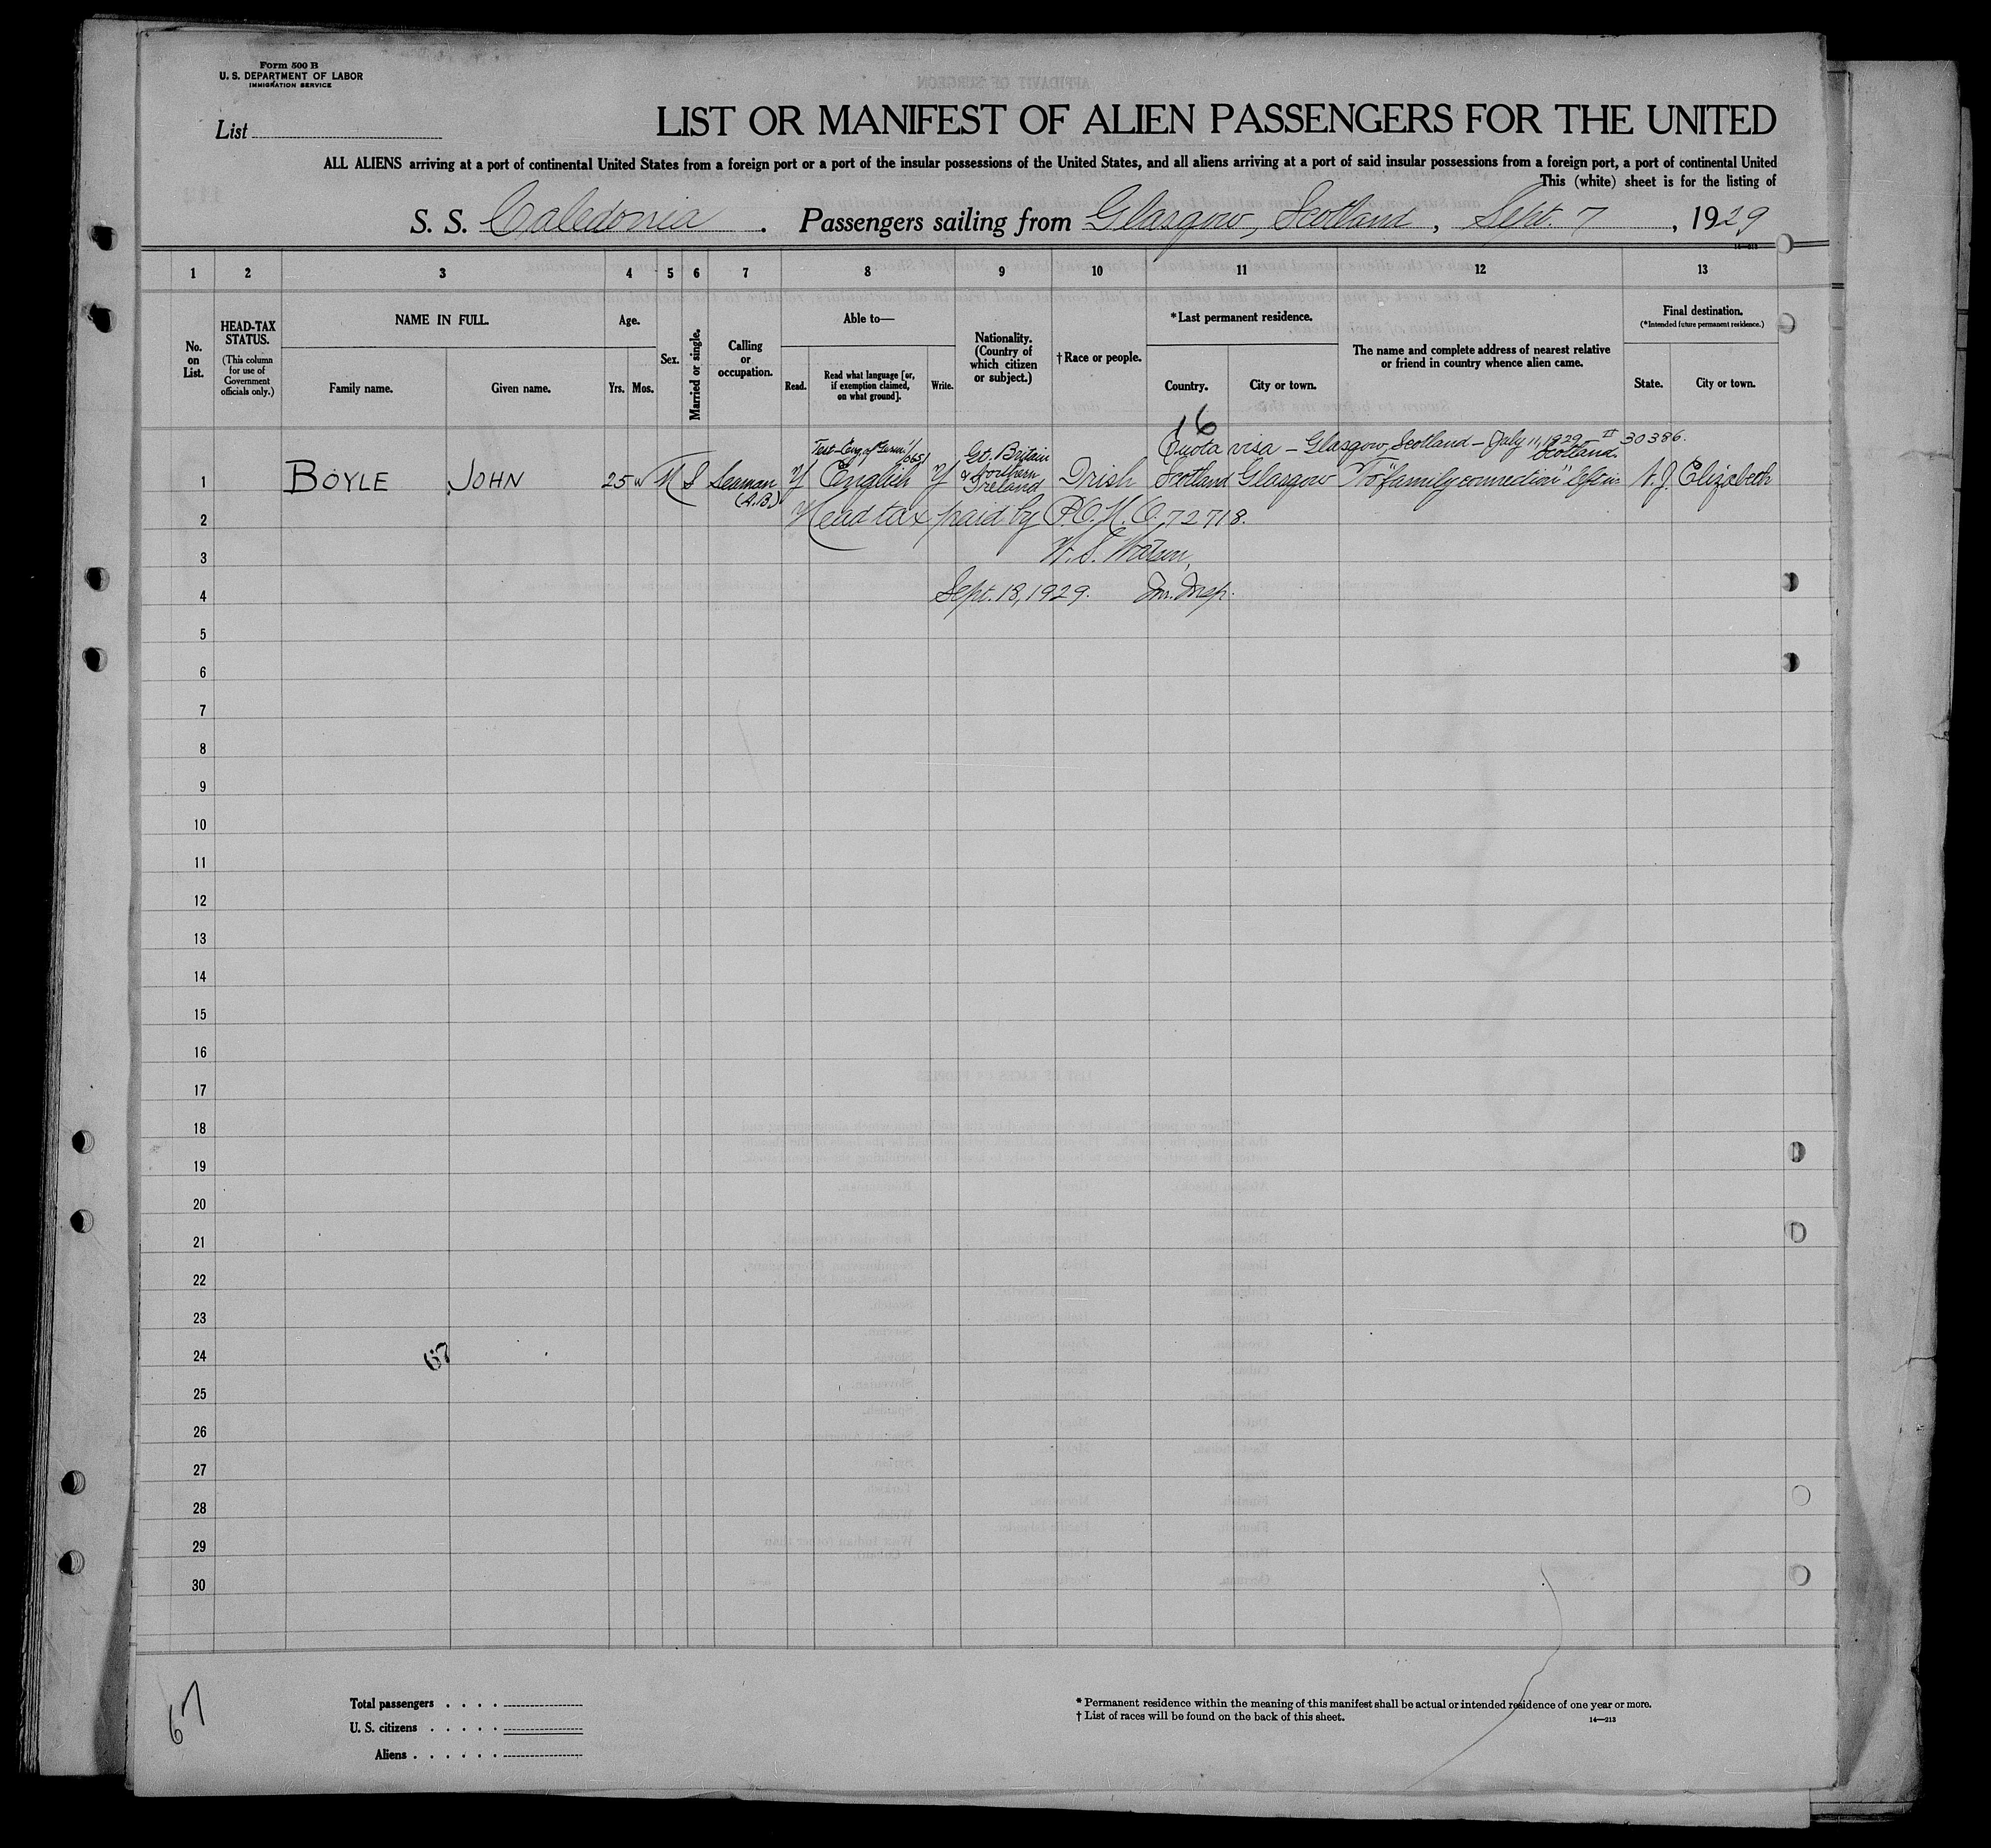 Form 500 B
U. S. DEPARTMENT OF LABOR
IMMIGRATION SERVICE
List
LIST OR MANIFEST OF ALIEN PASSENGERS FOR THE UNITED
ALL ALIENS arriving at a port of continental United States from a foreign port or a port of the insular possessions of the United States, and all aliens arriving at a port of said insular possessions from a foreign port, a port of continental United
This (white) sheet is for the listing of
S. S. Caledonia . Passengers sailing from Glasgow, Scotland , Sept. 7 , 1929
14—213
1 2 3 4 5 6 7 8 9 10 11 12 13
No. on List.
HEAD-TAX STATUS.
(This column for use of Government officials only.)
NAME IN FULL.
Family name. Given name.
Age.
Yrs. Mos.
Sex.
Married or single.
Calling or occupation.
Able to—
Read. Read what language [or, if exemption claimed, on what ground]. Write.
Nationality. (Country of which citizen or subject.)
† Race or people.
*Last permanent residence.
Country. City or town.
The name and complete address of nearest relative or friend in country whence alien came.
Final destination.
(*Intended future permanent residence.)
State. City or town.
16
Quota visa – Glasgow, Scotland – July 11, 1929 – 30386.
1 BOYLE JOHN 25 M S Seaman (A.B.) Y English Y Gt. Britain & Northern Ireland Irish Scotland Glasgow No "family connection" left in Scotland. N.J. Elizabeth
2 Head tax paid by P.O.M.O. 72718.
3 W. S. Watson,
4 Sept. 18, 1929. Im. Insp.
5
6
7
8
9
10
11
12
13
14
15
16
17
18
19
20
21
22
23
24 67
25
26
27
28
29
30
67
Total passengers . . . .
U. S. citizens . . . . .
Aliens . . . . . .
* Permanent residence within the meaning of this manifest shall be actual or intended residence of one year or more.
† List of races will be found on the back of this sheet.
14—213